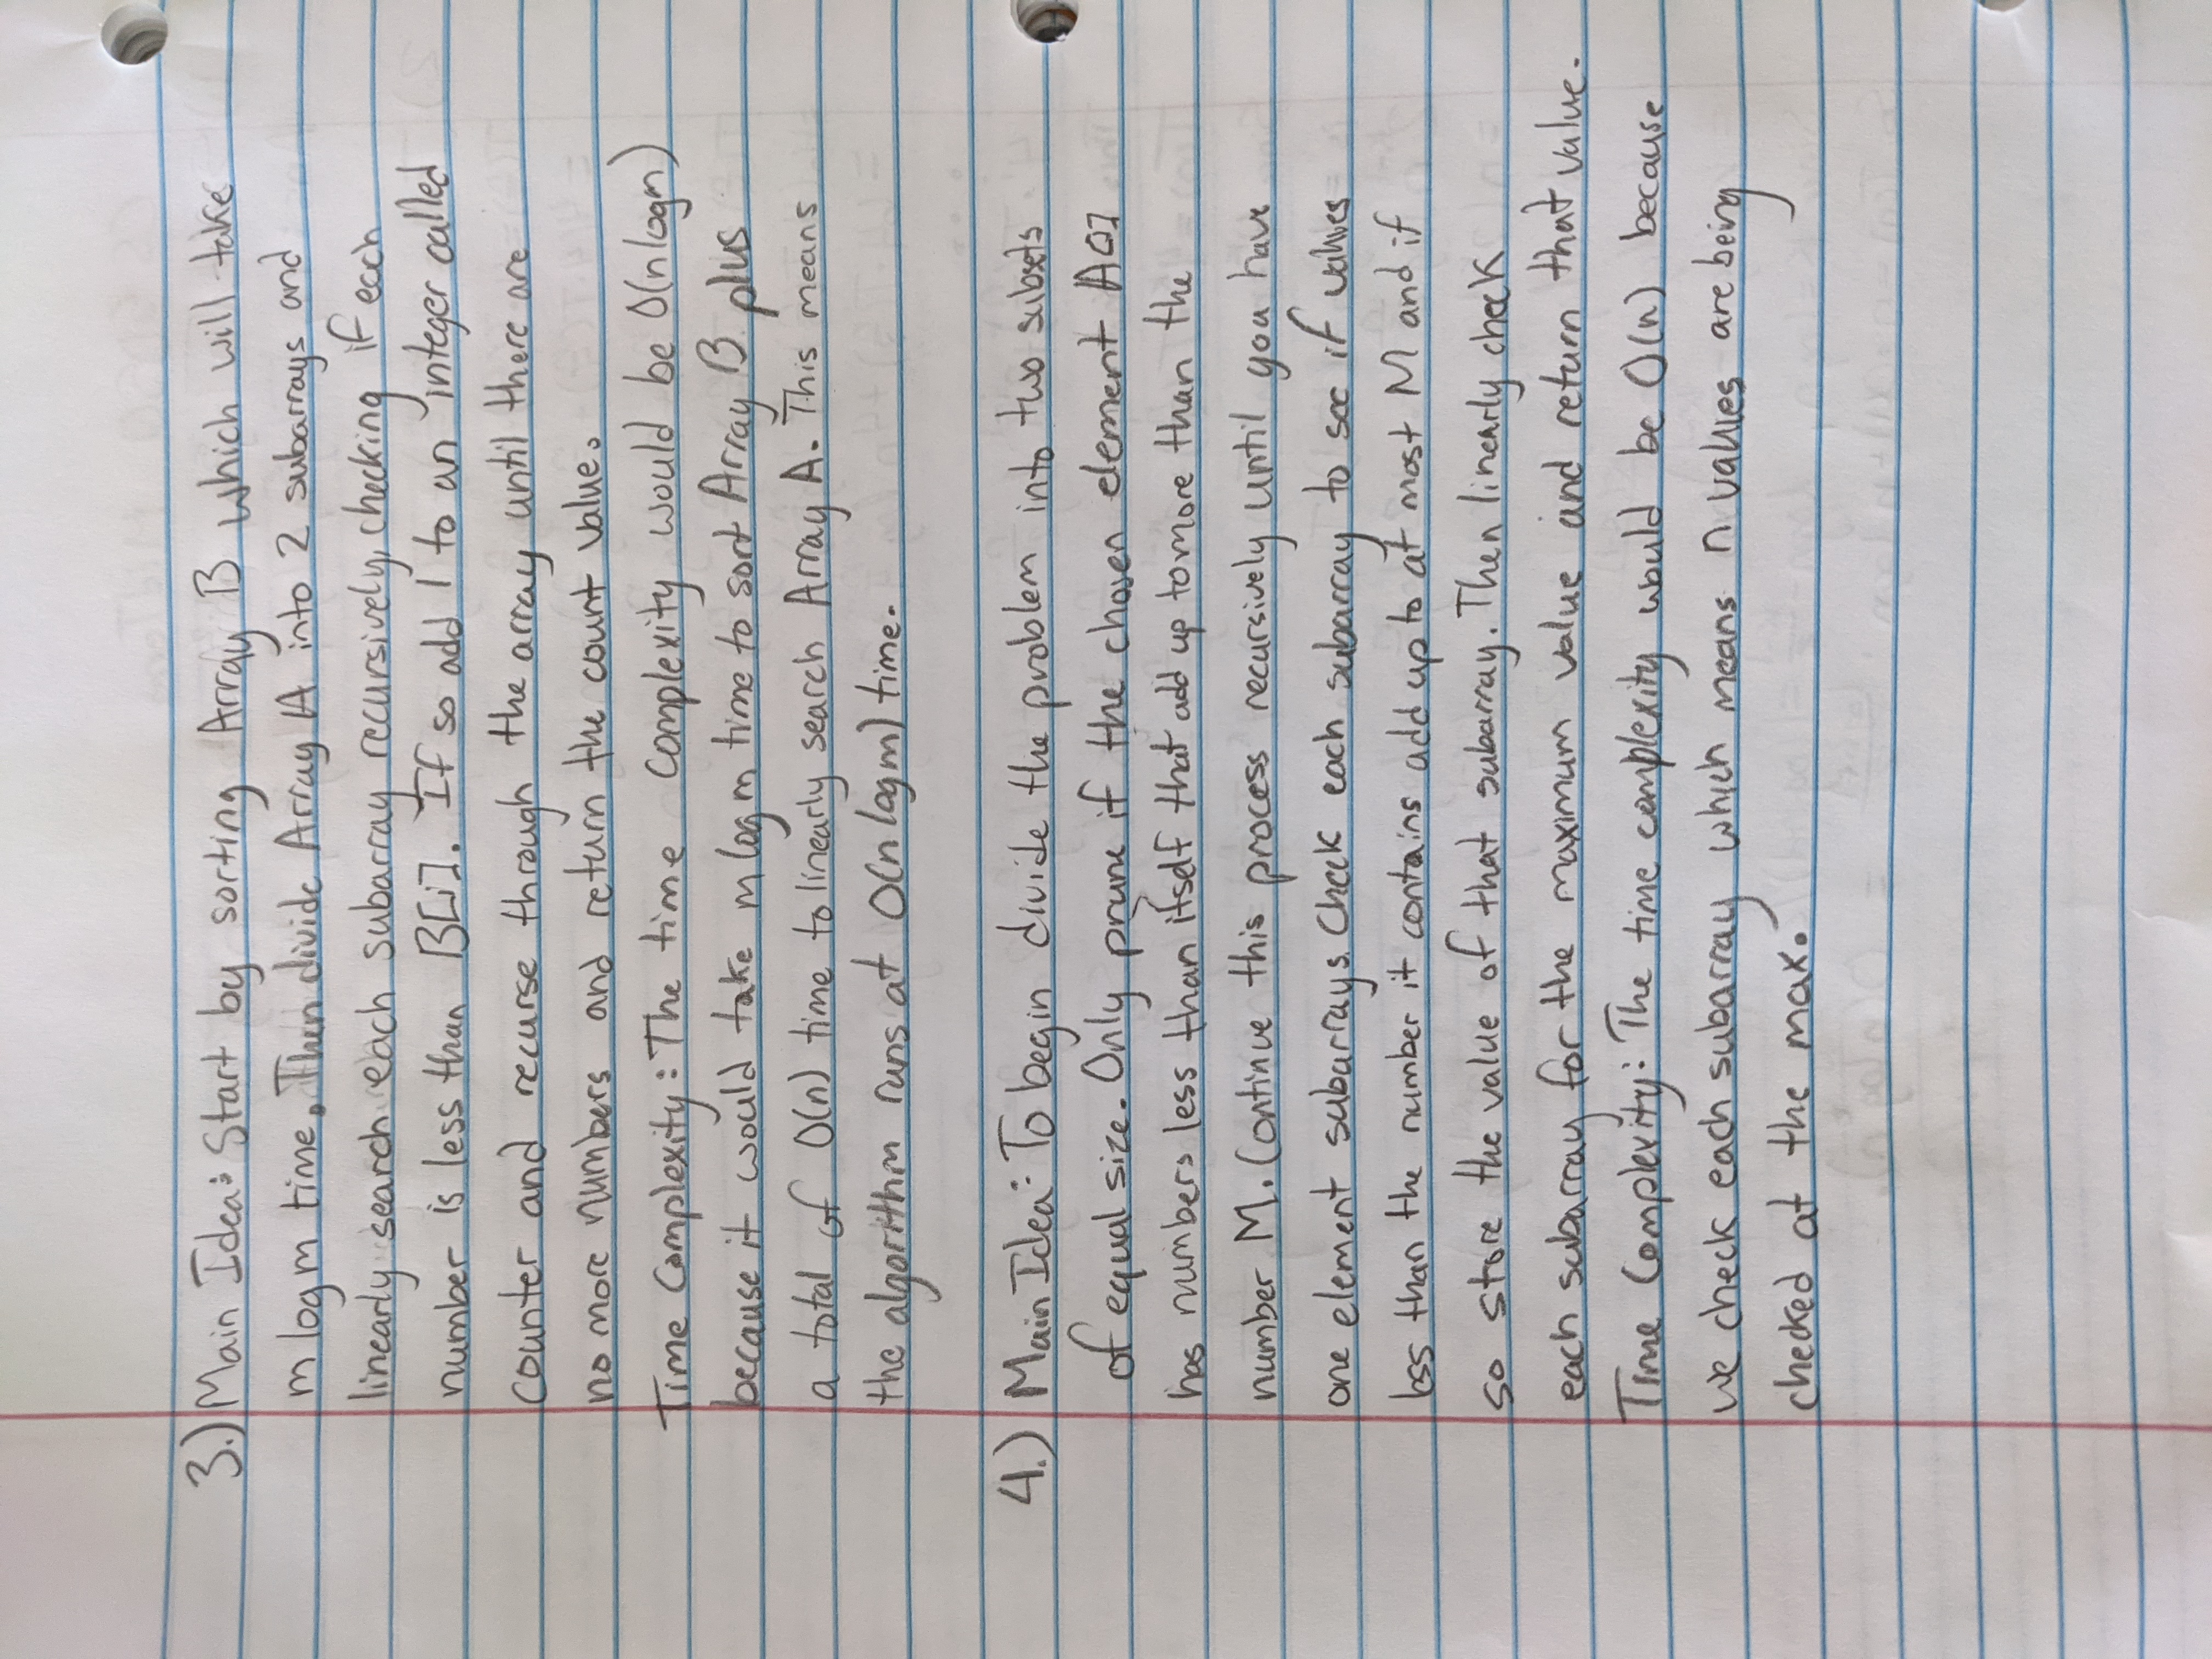 3.) Main Idea: Start by sorting Array B which will take
m log m time. Then divide Array A into 2 subarrays and
linearly search each subarray recursively, checking if each
number is less than B[i]. If so add 1 to an integer called
counter and recurse through the array until there are
no more numbers and return the count value.
Time Complexity: The time complexity would be O(n log m)
because it would take m log m time to sort Array B plus
a total of O(n) time to linearly search Array A. This means
the algorithm runs at O(n log m) time.
4.) Main Idea: To begin divide the problem into two subsets
of equal size. Only prune if the chosen element A[i]
has numbers less than itself that add up to more than the
number M. Continue this process recursively until you have
one element subarrays. Check each subarray to see if values
less than the number it contains add up to at most M and if
so store the value of that subarray. Then linearly check
each subarray for the maximum value and return that value.
Time Complexity: The time complexity would be O(n) because
we check each subarray which means n values are being
checked at the max.